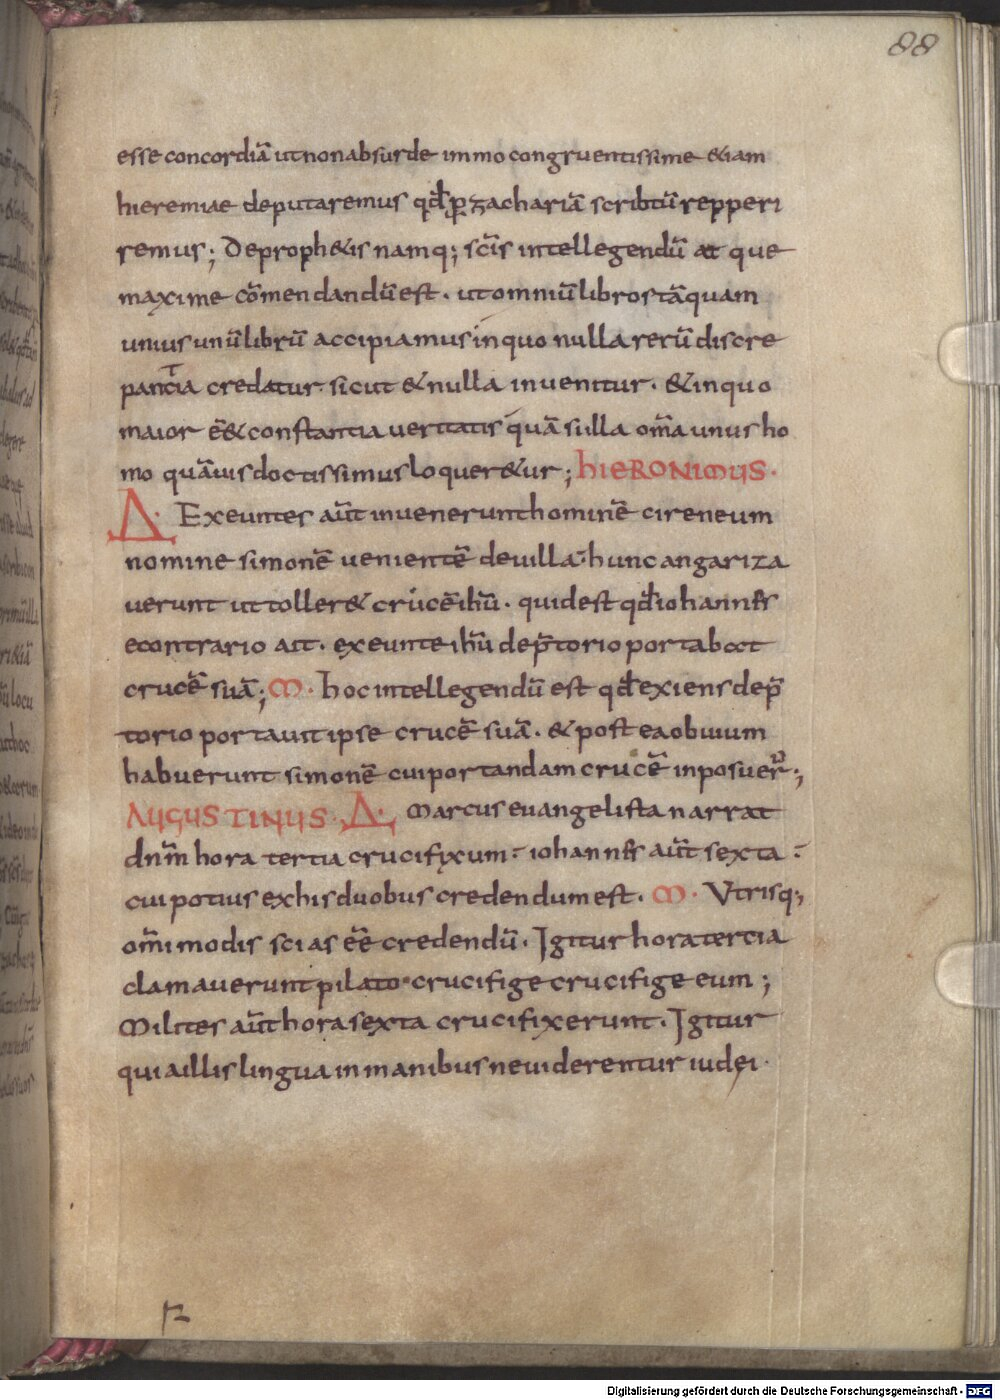 88
esse concordiā ut non absurde immo congruentissime &iam
hieremiae deputaremus qđ ꝑ zachariā scribtū repperi
remus; De proph&is namq; sc̄is intellegendū at que
maxime cōmendandū est. ut omniū libros tāquam
unius unū librū accipiamus in quo nulla rerū discre
panctia credatur sicut & nulla inuenitur. & in quo
maior ē & constantia ueritatis quā si illa om̄a unus ho
mo quāuis doctissimus loquer&ur; HIERONIMUS.
Δ. Exeuntes aūt inuenerunt hominē cireneum
nomine simonē uenientē de uilla. hunc angariza
uerunt ut toller& crucē ihū. quid est qđ iohannes
econtrario ait. exeunte ihū de p̄torio portabat
crucē suā; M. hoc intellegendū est qđ exiens de p̄
torio portauit ipse crucē suā. & postea obuium
habuerunt simonē cui portandam crucē inposuer̄;
AUGUSTINUS. Δ. Marcus euangelista narrat
dnm̄ hora tertia crucifixum. iohannes aūt sexta.
cui potius ex his duobus credendum est. M. Utrisq;
om̄imodis scias eē credendū. Igitur hora tercia
clamauerunt pilato crucifige crucifige eum;
Milites aūt hora sexta crucifixerunt. Igitur
qui a illis lingua in manibus ne uiderentur iudei.
Digitalisierung gefördert durch die Deutsche Forschungsgemeinschaft - DFG